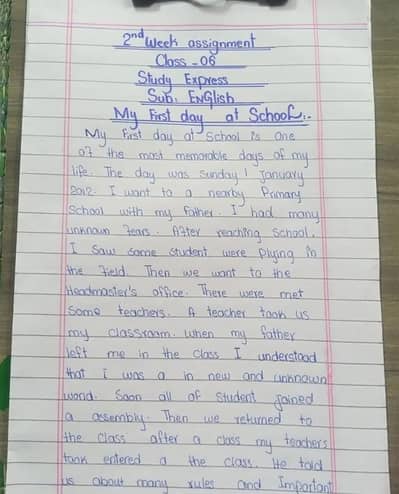 2nd Week assignment
Class - 06
Study Express
Sub: English
My First day at School:-
My First day at School is one
of the most memorable days of my
life. The day was Sunday 1 January
2012. I want to a nearby Primary
School with my father. I had many
unknown Fears. After reaching School.
I Saw Some Student were Plying in
the Field. Then we want to the
Headmaster's office. There were met
Some teachers. A teacher took us
my classroom. When my father
left me in the Class I understood
that I was a in new and unknown
world. Soon all of Student joined
a assembly. Then we returned to
the class after a class my teachers
tank entered a the class. He told
us about many rules and Important